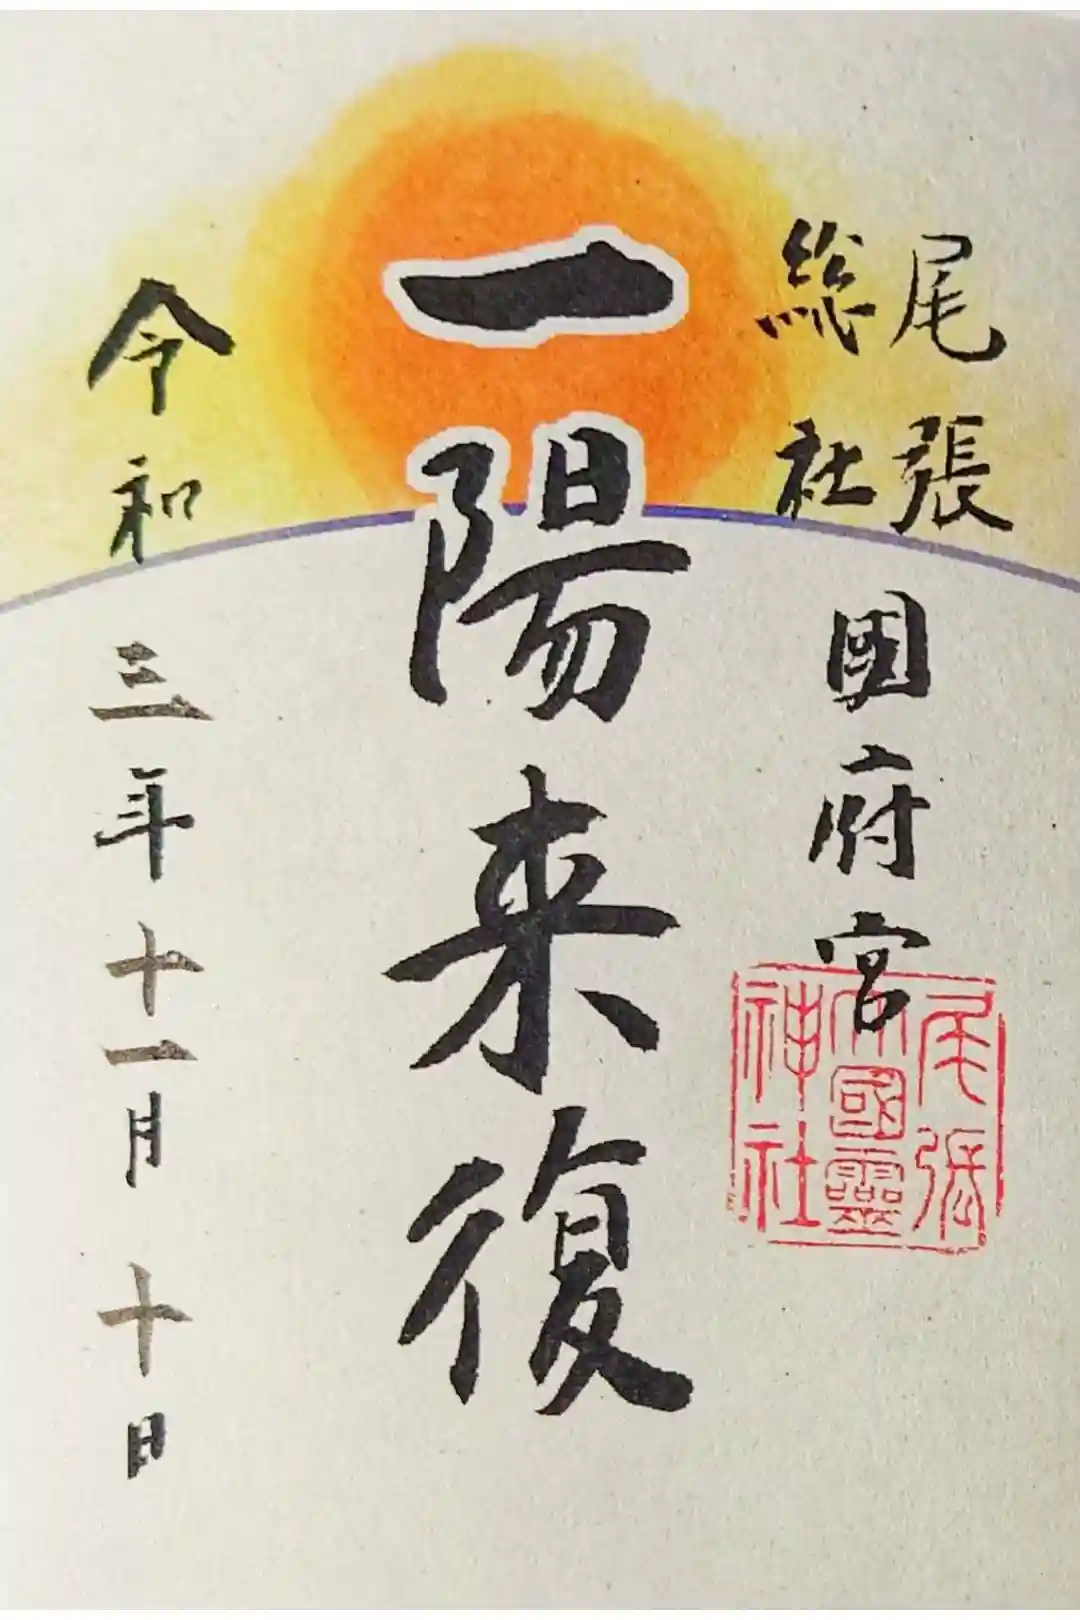 尾張
総社
國府宮
一陽来復
令和三年十一月十日
尾張
大國霊
神社